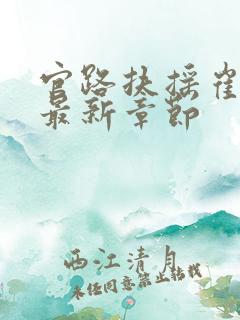 官路扶摇崔
最新章节
西江清月
未经同意禁止转载